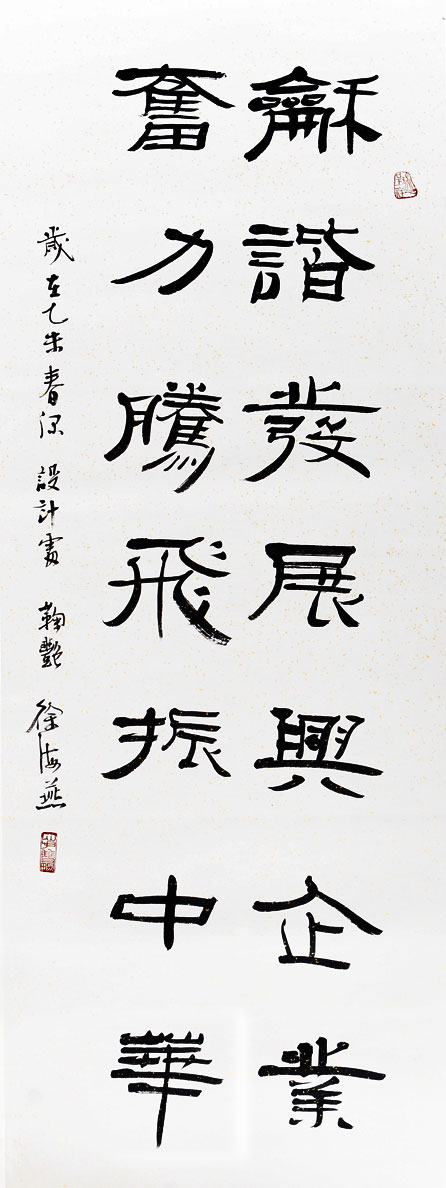 龢諧發展興企業
奮力騰飛振中華
歲在乙未春深 設計室 鞠艷 徐海燕